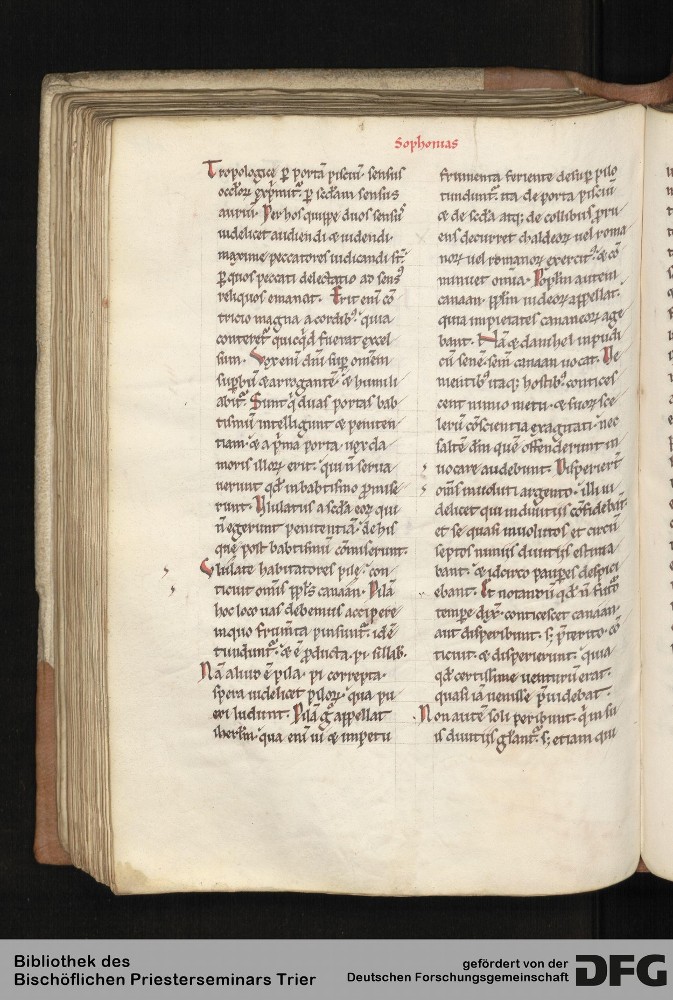 Sophonias
Tropologice ꝑ portā pisciū sensus
oculoꝝ exp̄mit᷑. ꝑ scd̄am sensus
auriū. Per hos quippe duos sensus
uidelicet audiendi & uidendi.
maxime peccatores iudicandi st̄.
ꝑ quos peccati delectatio ad sensꝰ
reliquos emanat. Erit eni cō
tricio magna a cordibꝰ. quia
conteret᷑ quicq̄d fuerat excel
sum. Vox enī dn̄i sup̄ omēm
supbū & arrogantē. & humili
abit᷑. Sunt q̄ duas portas bab
tismū intelligunt & peniten
tiam. & a p̄ma porta uox cla
moris illoꝝ erit. qui n̄ serua
uerunt qd̄ in babtismo p̄mise
runt. Vlulatus a scd̄a eoꝝ qui
n̄ egerunt penitentiā. de his
que post babtismū cōmiserunt.
Vlulate habitatores pile. con
ticuit omīs ppl̄s canaan. Pilā
hoc loco uas debemus accipere
in quo frumta pinsunt᷑. id ē
tundunt᷑. & ē ꝓducta. pi sillab.
Nā aliud ē pila. pi correpta.
spera uidelicet piloꝝ. qua pu
eri ludunt. Pilā g̊ appellat
iherlm̄. qua enī ui & impetu
frumenta feriente desup̄ pilo
tundunt᷑. ita de porta pisciū
& de scd̄a atq; de collibus ꝓru
ens decurret chaldeoꝝ uel roma
noꝝ uel romanoꝝ exercitꝰ. & cō
minuet omīa. Poplm̄ autem
canaan. pplm̄ iudeoꝝ appellat.
quia impietates cananeoꝝ age
bant. Nā & danihel inpudi
cū senē. semē canaan uocat. Ve
nientibꝰ itaq; hostibꝰ. contices
cent nimio metu. & suoꝝ sce
lerū cōscientia exagitati. nec
saltē dm̄ quē offenderunt in
uocare audebunt. Disperierт̄
omīs inuoluti argento. illi ui
delicet qui in diuitiis cōfidebāt.
et se quasi inuolutos et circū
septos nimiis diuitiis estima
bant. & idcirco pauꝑes despici
ebant. Et notandū qd̄ n̄ futo
tempe dix̄. conticescet canaan.
aut disperibunt. s; p̄terito. cō
ticuit. & disperierunt. quia
qd̄ certissime uenturū erat.
quasi iā uenisse p̄uidebat.
Non autē soli peribunt. q̄ in su
is diuitiis gl̄ant᷑. s; etiam qui
Bibliothek des
Bischöflichen Priesterseminars Trier
gefördert von der
Deutschen Forschungsgemeinschaft
DFG